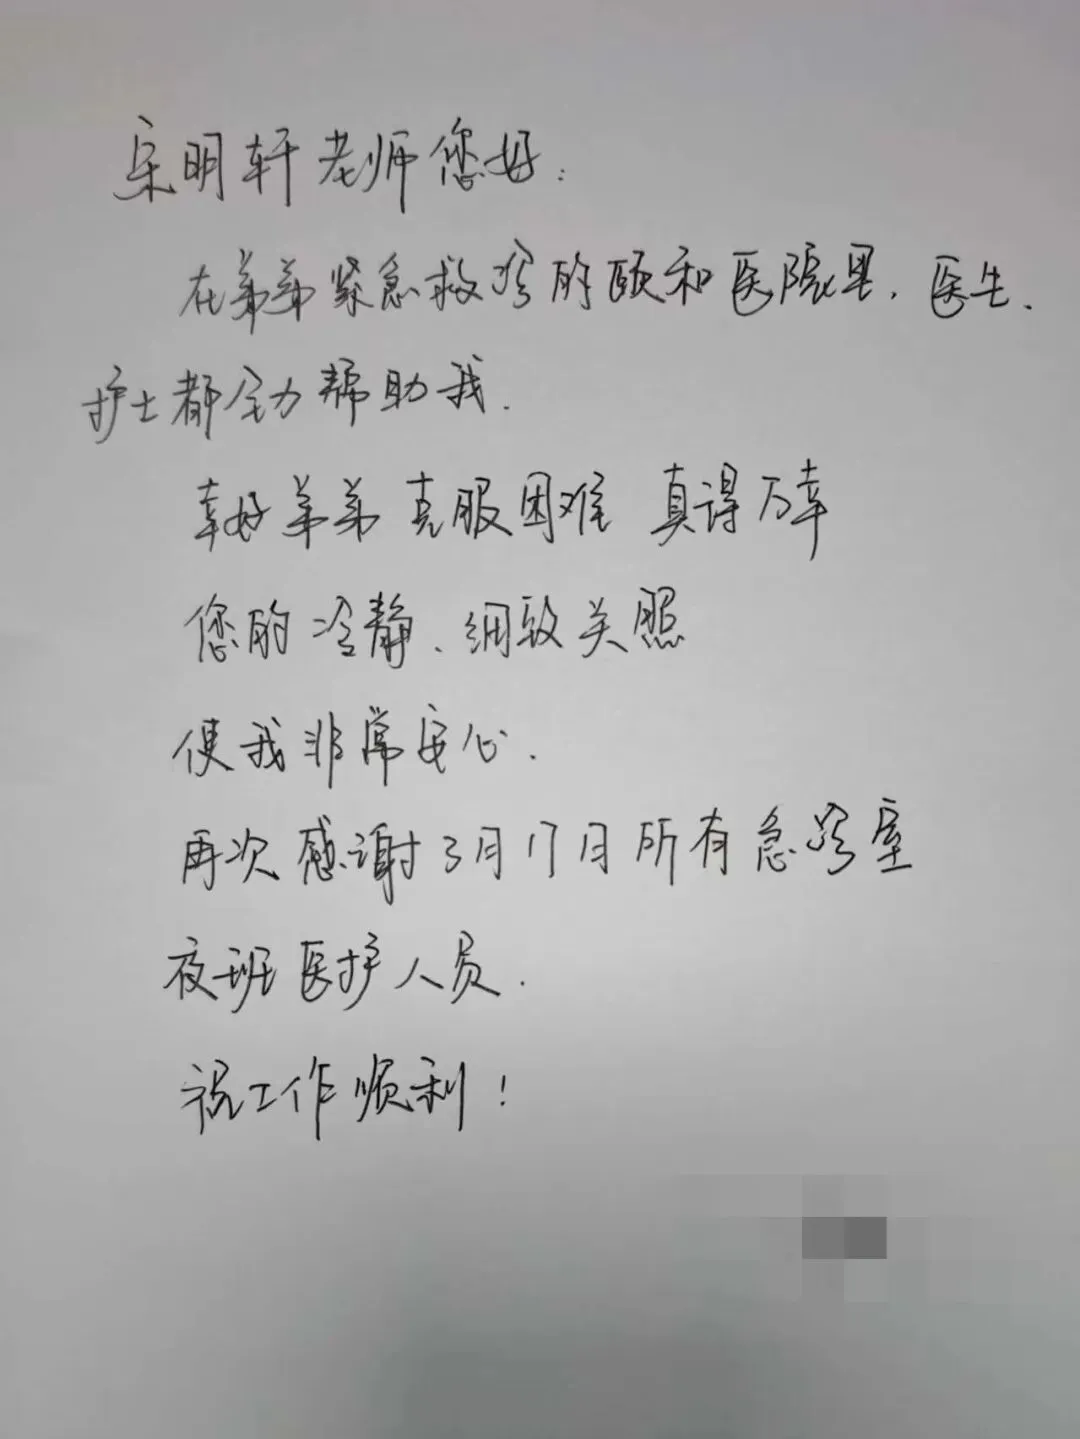 宋明轩老师您好：
在弟弟紧急救诊的颐和医院里，医生、
护士都全力帮助我.
幸好弟弟克服困难 真得万幸
您的冷静、细致关照
使我非常安心.
再次感谢3月17日所有急诊室
夜班医护人员.
祝工作顺利！